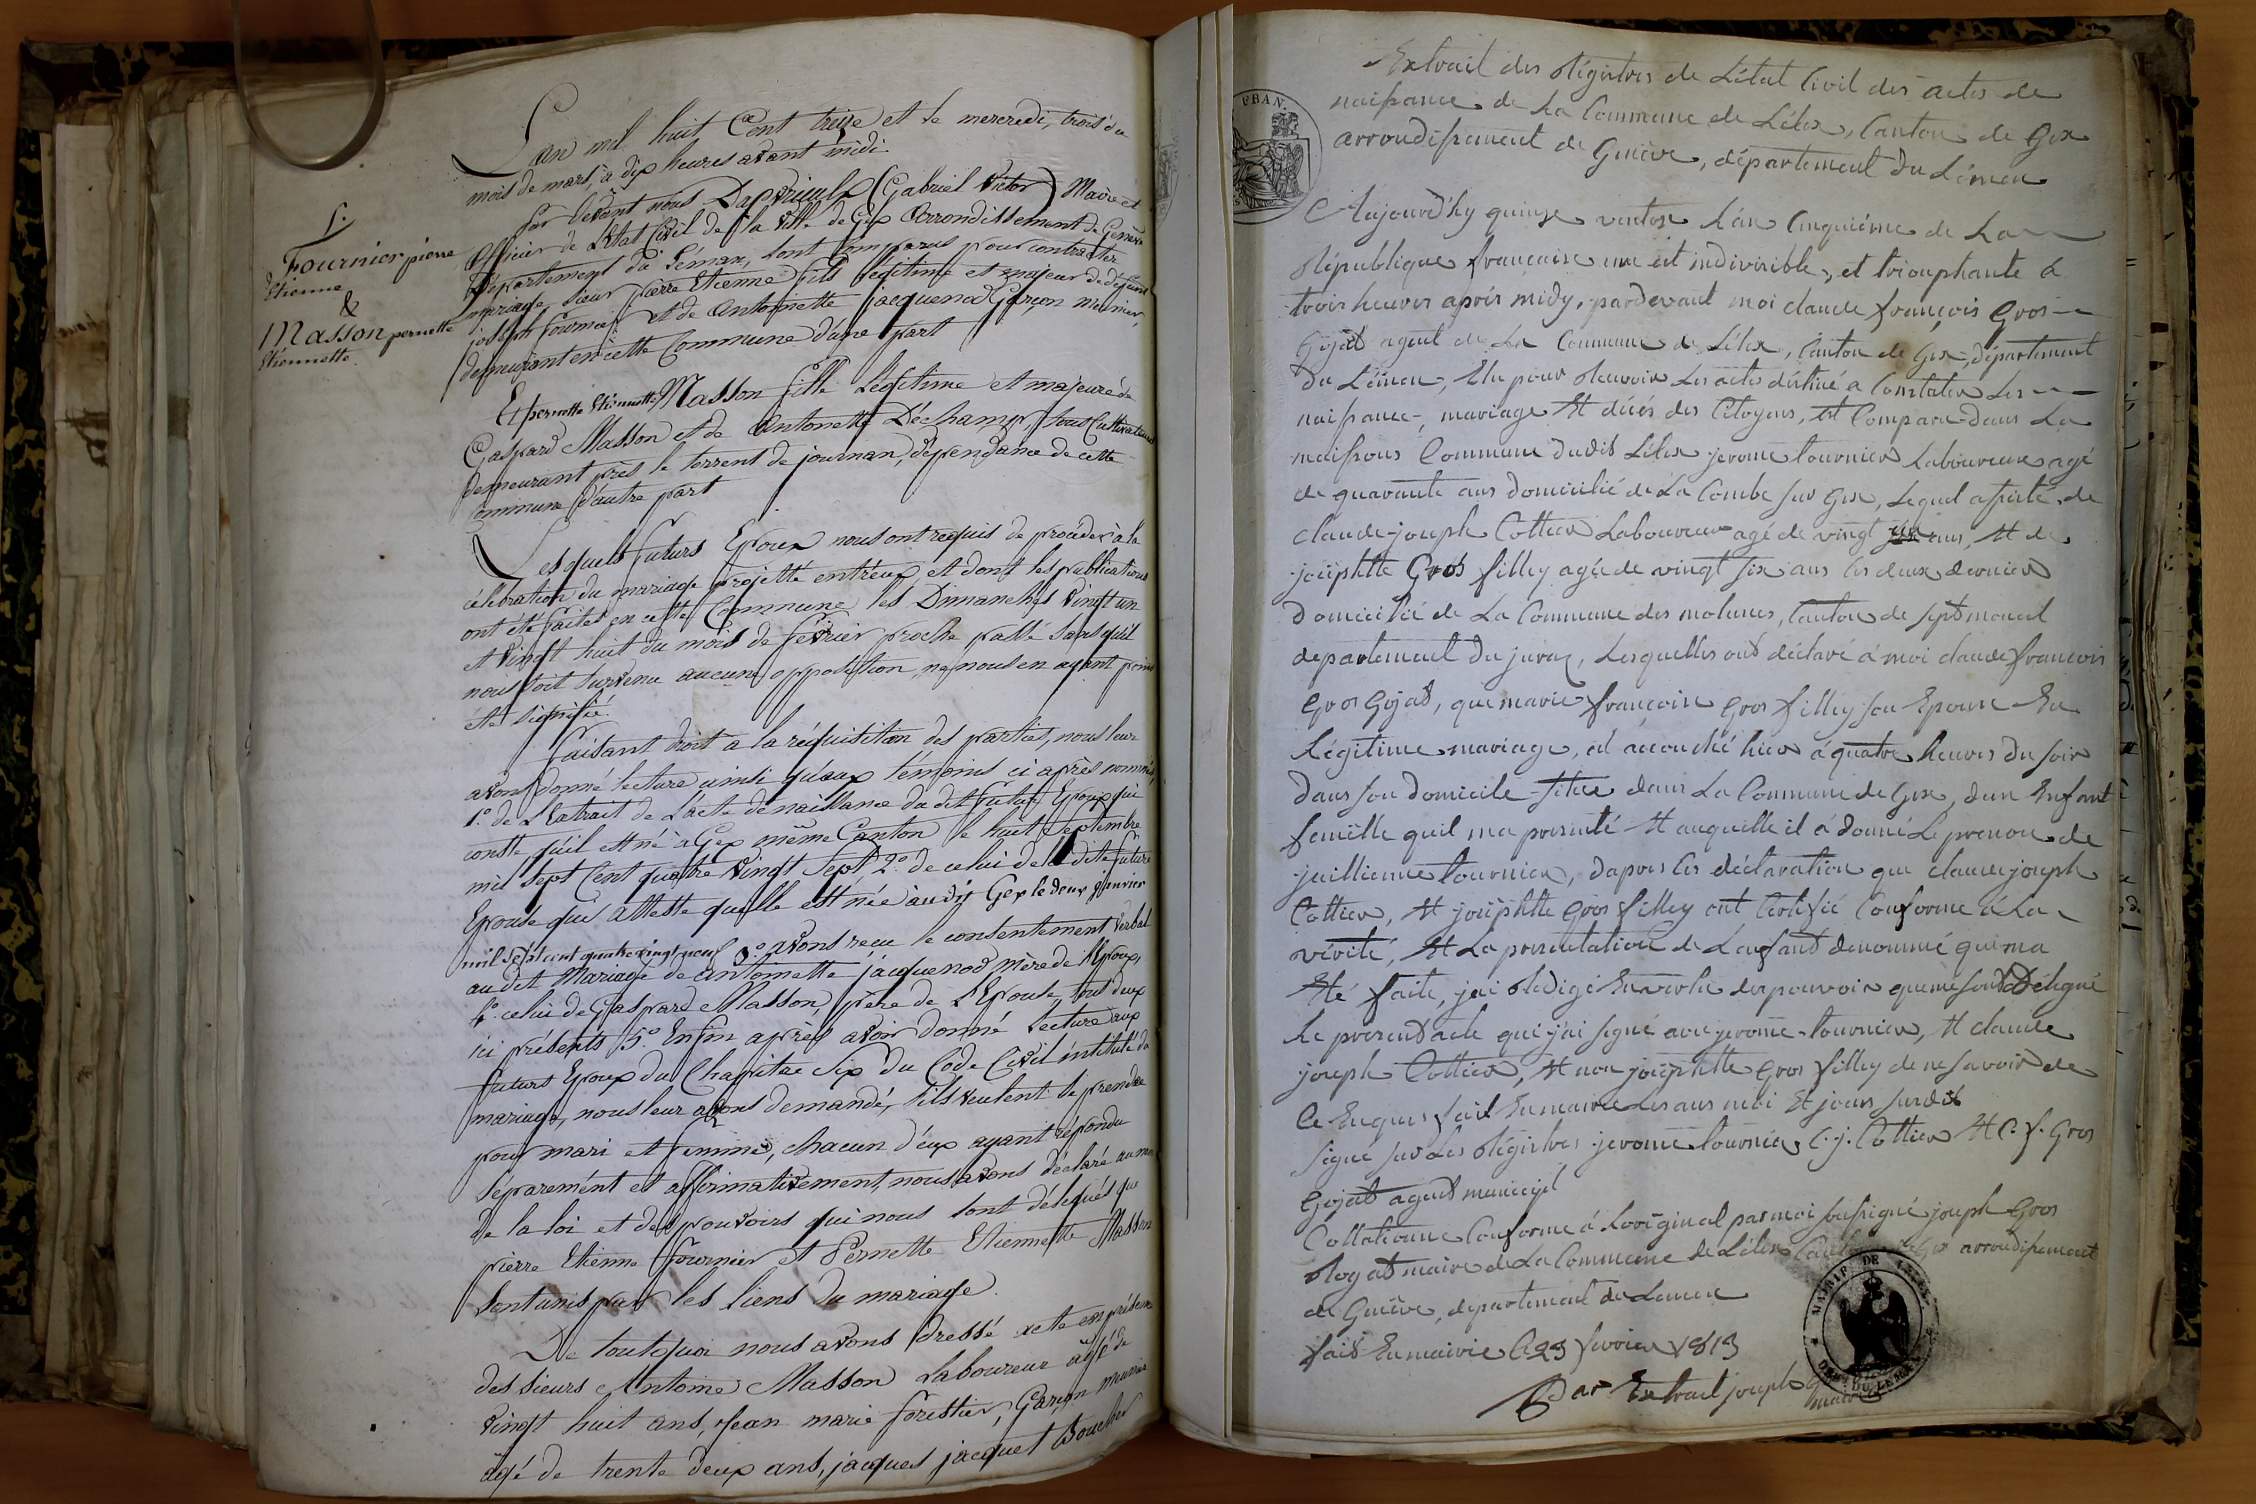 5.
Fournier pierre
Etienne
&
Masson pernette
Etiennette
L'an mil huit Cent treize et le mercredi, trois du
mois de mars, à dix heures avant midi
Par devant nous (Gabriel Victor) Maire et
Officier de L'Etat Civil de la Ville de Gex Arrondissement de Genève
Département du Léman, sont Comparus pour contracter
mariage, sieur pierre Etienne fils légitime et majeur de defunt
joseph fournier et de Antoinette jacquenod Garçon meunier,
demeurant en cette Commune d'une part
Et pernette Etiennette Masson fille Légitime et majeure de
Gaspard Masson et de Antoinette Déchamp, tous Cultivateurs
demeurant près le torrent de journan, dépendance de cette
commune d'autre part
Lesquels futurs Epoux nous ont requis de procéder à la
célébration du mariage projetté entr'eux, et dont les publications
ont été faites en cette Commune les Dimanches Vingt un
et Vingt huit du mois de février proche passé sans qu'il
nous soit survenu aucune opposition, ne nous en ayant point
été signifié
faisant droit a la réquisition des parties, nous leur
avons donné lecture ainsi qu'aux témoins ci après nommés,
1.° de L'Extrait de L'acte de naissance du dit futur Epoux qui
conste qu'il est né à Gex même Canton le huit Septembre
mil sept Cent quatre Vingt Sept 2.° de celui de la dite future
Epouse qui atteste quelle est née audit Gex le deux janvier
mil sept cent quatre vingt neuf 3.° avons reçu le consentement verbal
au dit Mariage de antoinette jacquenod mère de l'Epoux,
4.° celui de Gaspard Masson, père de L'Epouse, tous deux
ici présents 5.° Enfin après avoir donné lecture aux
futurs Epoux du Chapitre Six du Code Civil intitulé du
mariage, nous leur avons demandé, s'ils veulent se prendre
pour mari et femme, chacun d'eux ayant répondu
séparemént et affirmativement, nous avons déclaré au nom
de la loi et des pouvoirs qui nous sont délégués que
pierre Etienne fournier et Pernette Etiennette Masson
sont unis par les liens du mariage.
De tout quoi nous avons dressé acte en présence
des sieurs Antoine Masson Laboureur agé de
Vingt huit ans, Jean marie forestier, Garçon meunier
agé de trente deux ans, jacques jacquet Boucher
FRAN.
Extrait des Régistres de L'état Civil des actes de
naissance de La Commune de Lélex, Canton de Gex
arrondissement de Genève, département du Lémen
Aujourd'hy quinze ventose L'an Cinquiéme de La
République francaise une et indivisible, et triouphante à
trois heures aprés midy, pardevant moi claude françois Gros
Gojat agent de La Commune de Lélex, Canton de Gex, département
du Lémen, Elu pour Recevoir Les actes déstiné a Constater Les
naissance, mariage Et décés des Citoyens, Est Comparu dans La
maisons Commune dudit Lélex jerome tournier Laboureure agé
de quarante ans domicilié de La Combe sur Gex, Lequel assisté de
claude joseph Cottier Laboureur agé de vingt ans, Et de
josephtte Gros filley agée de vingt six ans les deux dernier
domicilié de La Commune des molunes, Canton de septmoncel
departement du juraz, Lesquelles ont déclaré á moi claude francois
Gros Gojat, que marie françoise Gros filley son Epouse En
Légitime mariage, est accouché hier á quatre heures du soir
dans son domicile situe dans La Commune de Gex, dun Enfant
femille quil ma presenté Et auquelle il á donné Le prenom de
juillienne tournier, dapres les déclaration que claude joseph
Cottier, Et josephtte Gros filley ont Certifié Conforme á La
vérité, Et La presentation de Lenfant denommé qui ma
Eté faite, jai Redigé Envertu des pouvoir qui me sont Déligué
Le present acte qui j'ai signé avec jerome tournier, Et claude
joseph Cottier, Et non josephtte Gros filley de ne savoir de
Ce Enquis fait Enmairie Les ans moi Et jour susdit
signé sur Les Régistres jerome tournier, C. j. Cottier Et C. f. Gros
Gojat agent municipl
Collationne Conforme á Loriginal par moi soussigné joseph Gros
maire de La Commune de Lélex Canton de Gex arrondissement
de Genêve, departement du Lemen
fait Enmairie Ce 23 fevrier 1813
Par Extrait joseph
maire
MAIRIE DE
DEPT. DU LEMAN